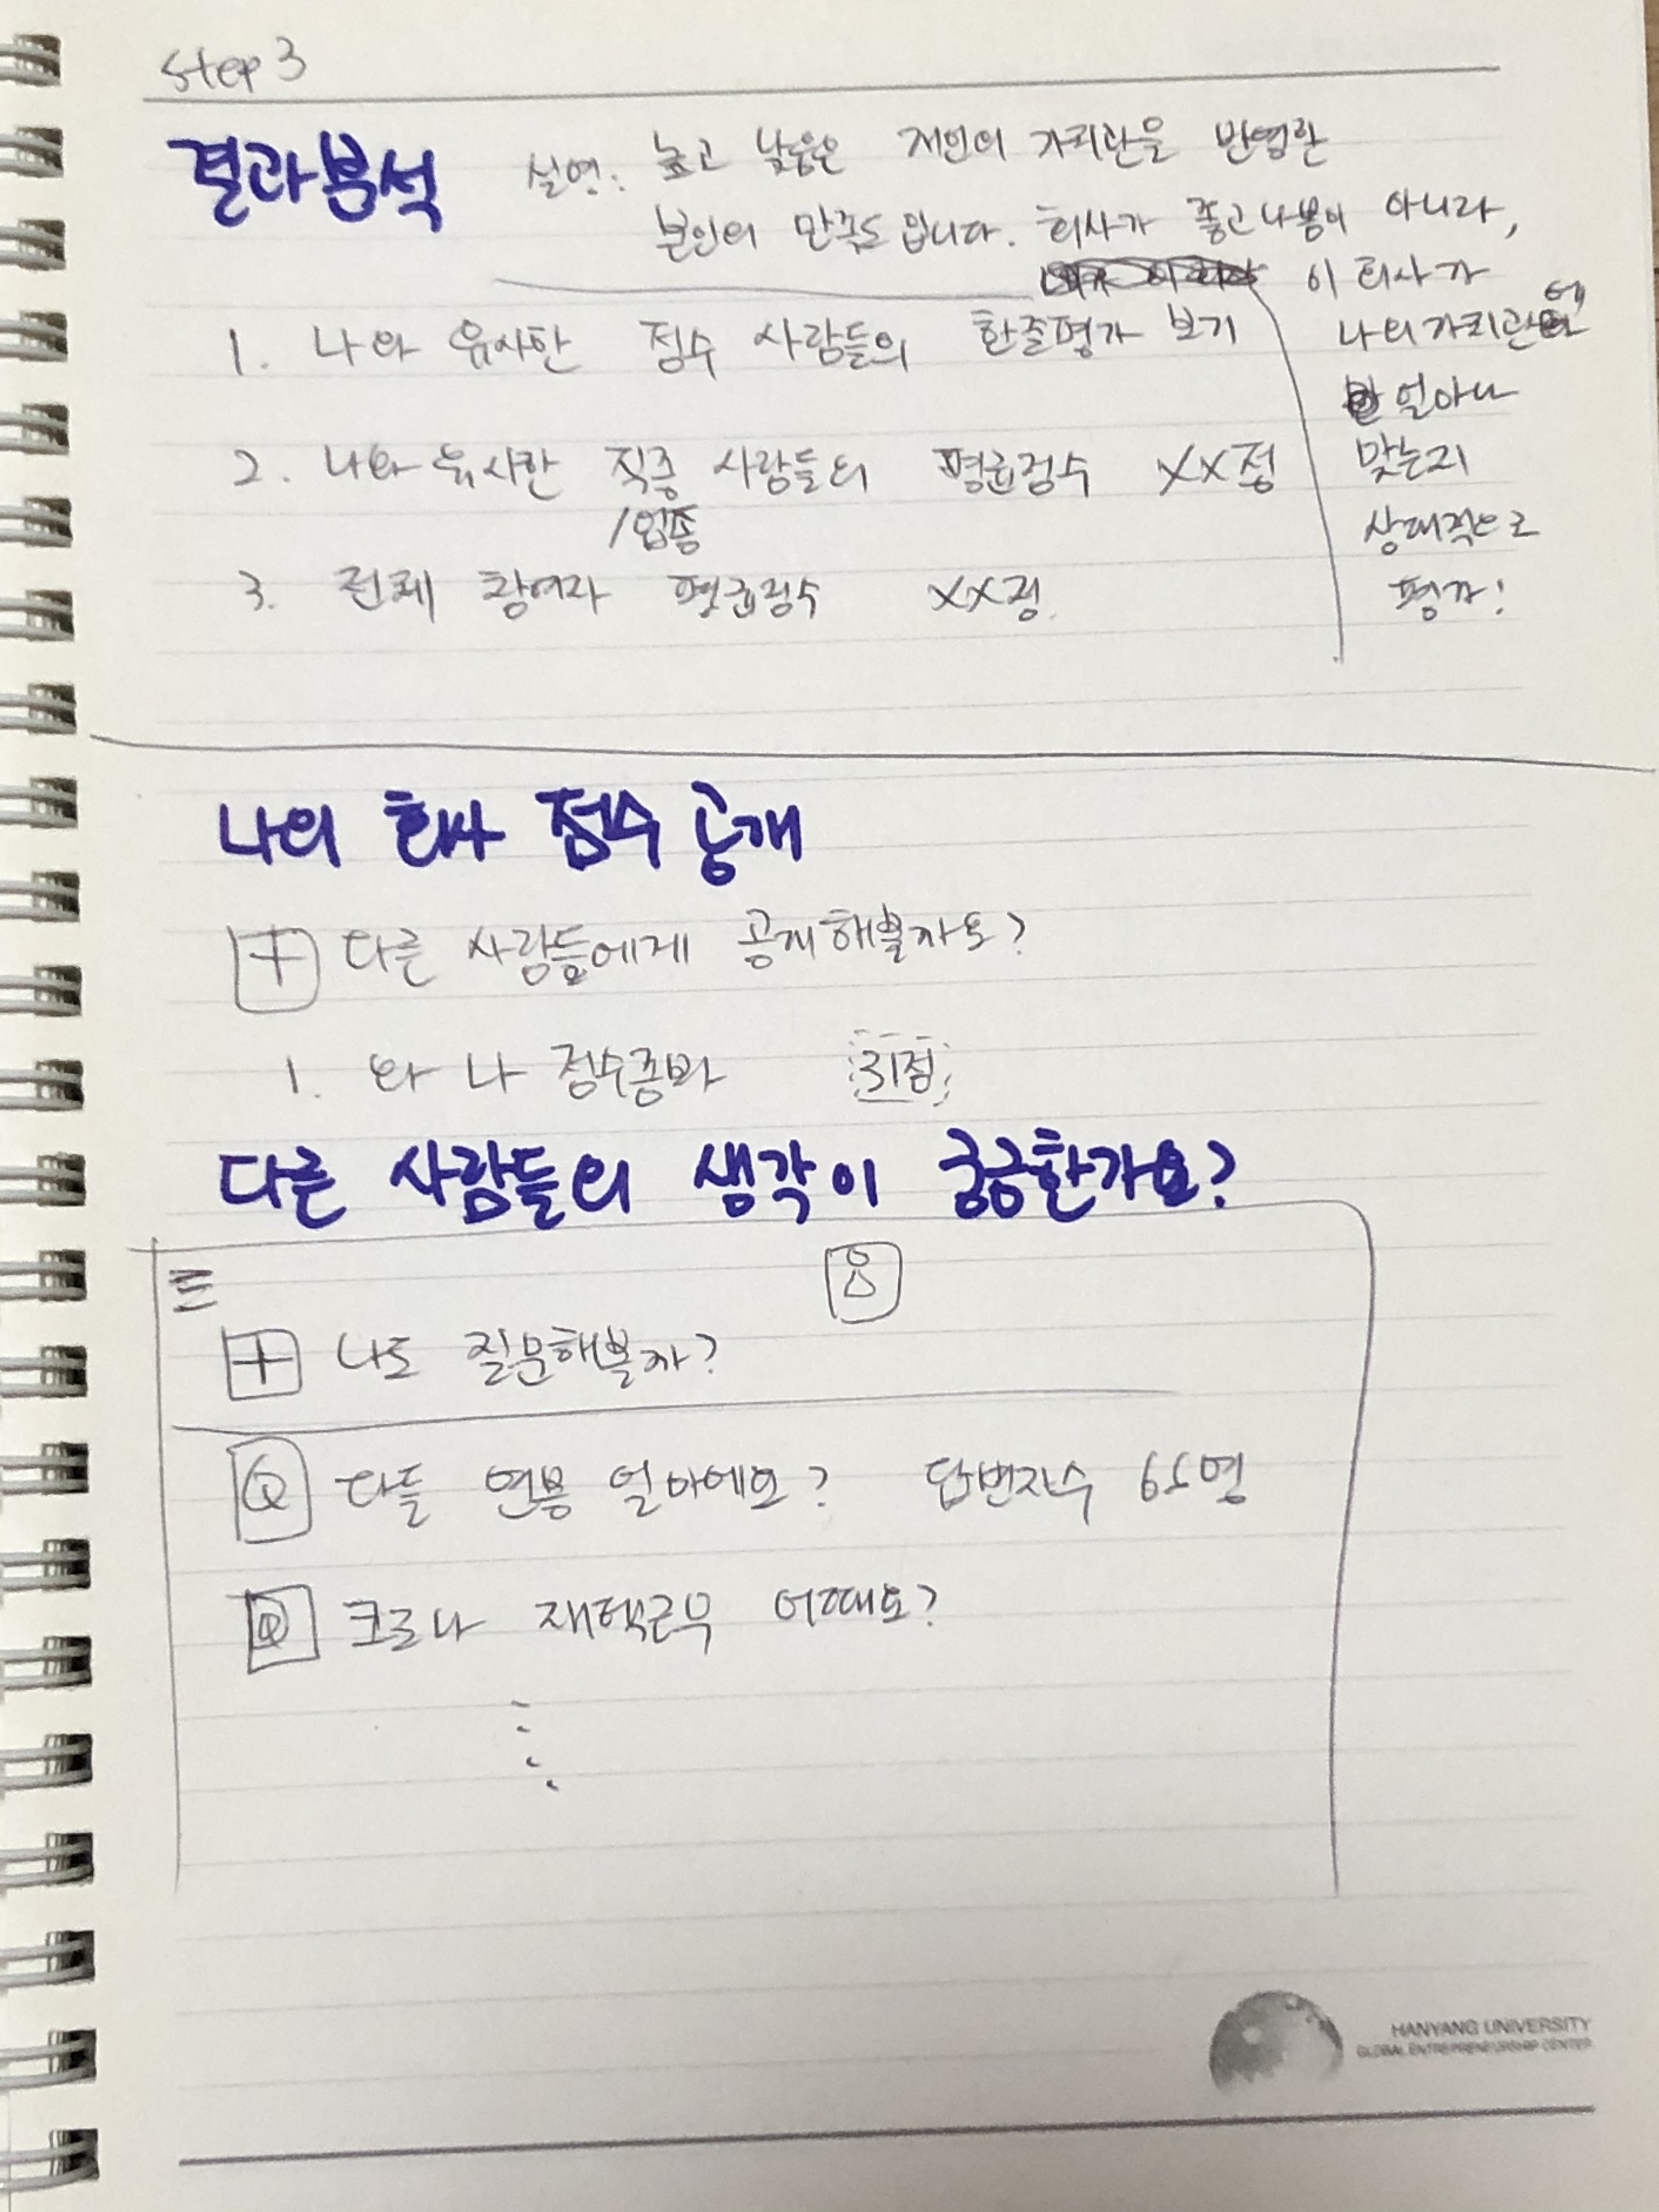 Step 3
결과분석
설명: 높고 낮음은 개인의 가치관을 반영한
본인의 만족도입니다. 회사가 좋고 나쁨이 아니라,
이 회사가
나의 가치관에
얼마나
맞는지
상대적으로
평가!
1. 나와 유사한 점수 사람들의 한줄평가 보기
2. 나와 유사한 직종 사람들의 평균점수 XX점
/업종
3. 전체 참여자 평균점수 XX점.
나의 회사 점수 공개
+ 다른 사람들에게 공개해볼까요?
1. 와 나 점수좀봐 31점
다른 사람들의 생각이 궁금한가요?
+ 나도 질문해볼까?
Q 다들 연봉 얼마에요? 답변자수 65명
Q 코로나 재택근무 어때요?
HANYANG UNIVERSITY
GLOBAL ENTREPRENEURSHIP CENTER